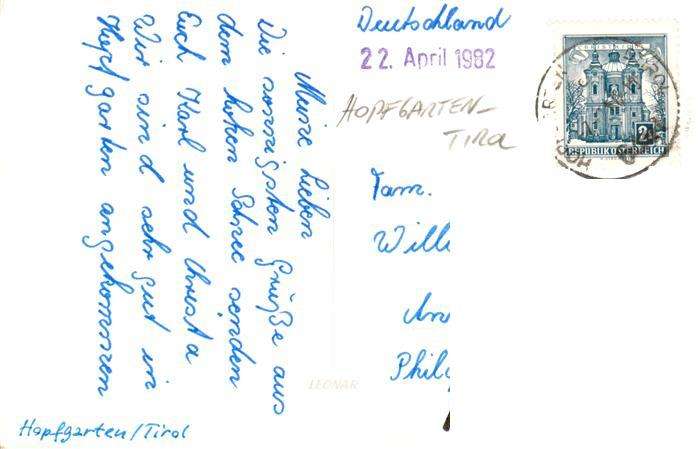 Meine Lieben
Die sonnigsten Grüße aus
dem hohen Schnee senden
Euch Karl und Christa
Wir sind sehr gut in
Hopfgarten angekommen
Hopfgarten/Tirol
Deutschland
22. April 1982
HOPFGARTEN-
TIROL
Fam.
Will
An
Phil
CHRISTKINDL
2S
REPUBLIK ÖSTERREICH
LEONAR